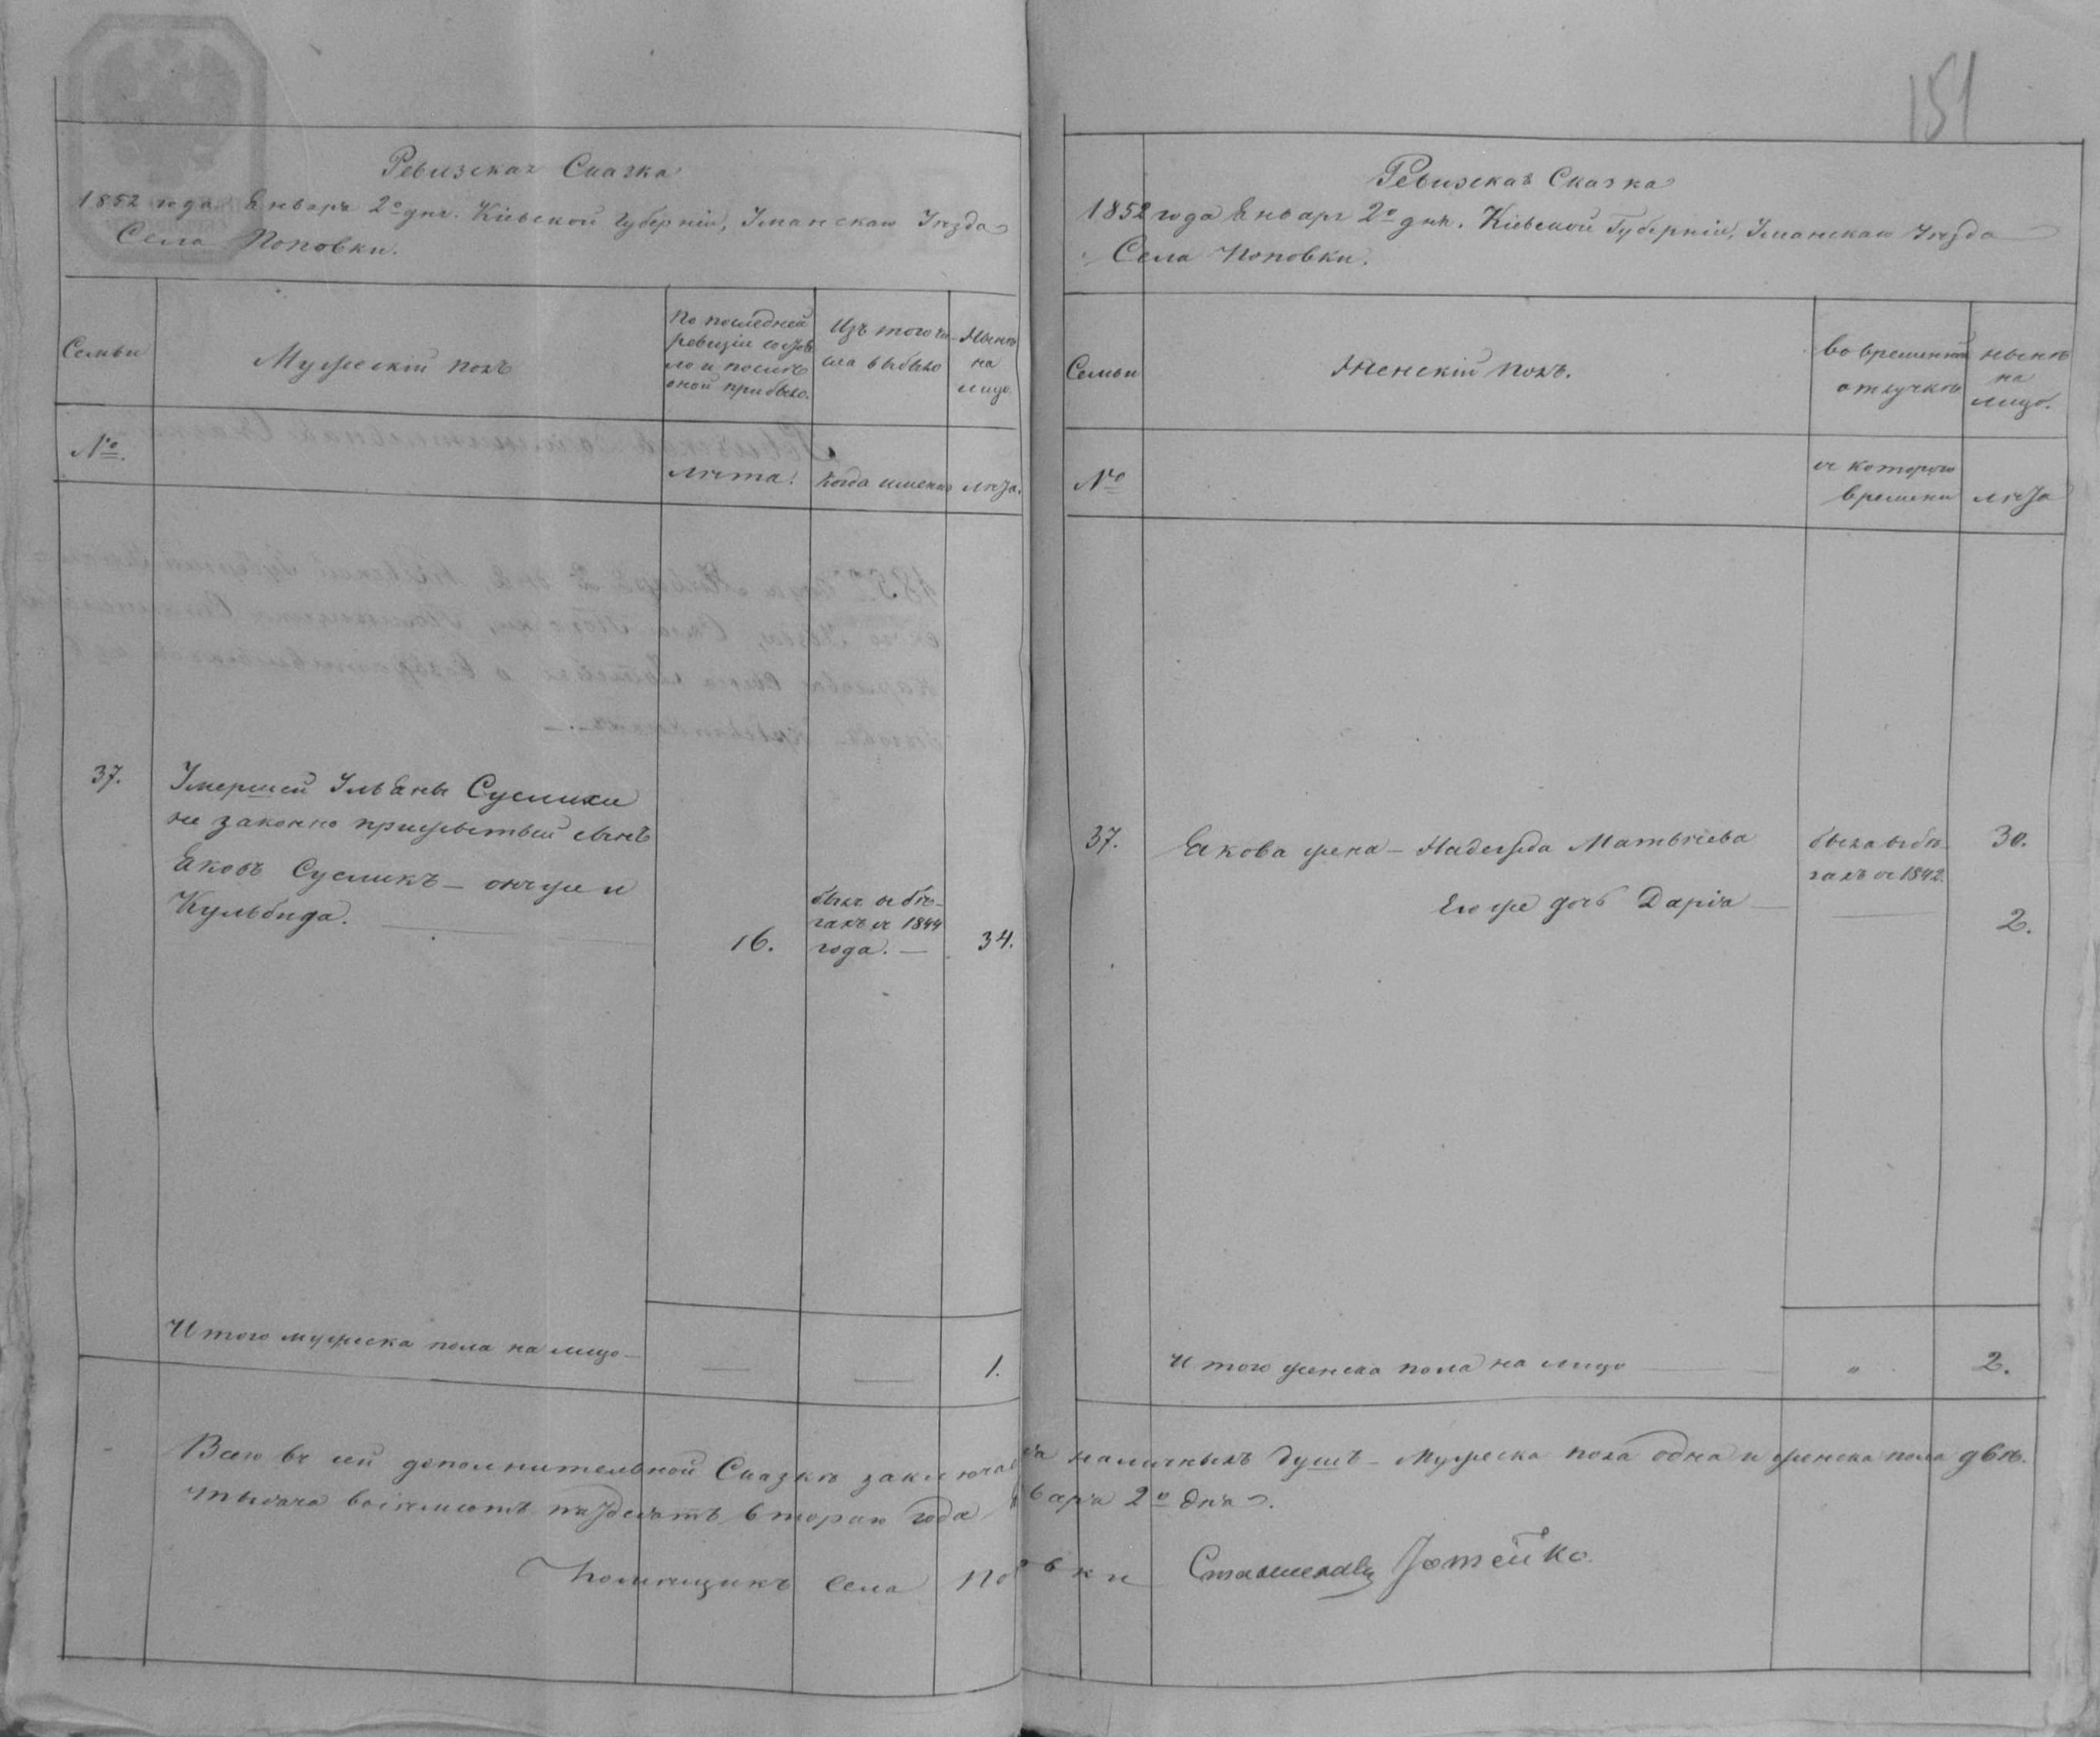 151
Ревизская Сказка
1852 года Января 2º дня. Кіевской Губерніи, Уманскаго Уезда
Села Поповки.
Семьи
Мужескій полъ
По последней
ревизіи состоя
ло и после
оной прибыло.
Изъ того чи
сла выбыло
Ныне
на
лицо.
№
Лета.
Когда именно
лета.
37.
Умершей Ульяны Суслихи
не законно прижытый сынъ
Яковъ Сусликъ – онъ же и
Кульбида.
16.
былъ въ бе-
гахъ съ 1844
года. —
34.
Итого мужеска пола на лицо —
1.
Ревизская Сказка
1852 года Января 2º дня. Кіевской Губерніи, Уманскаго Уезда
Села Поповки.
Семьи
Женскій полъ.
во временной
отлучке
ныне
на
лицо.
№
съ котораго
времени
лета
37.
Якова жена – Надежда Матвеева
была въ бе-
гахъ съ 1842.
30.
Его же дочь Дарія —
2.
Итого женска пола на лицо
"
2.
Всего въ сей дополнительной Сказке заключа наличныхъ душъ – мужеска пола одна и женска пола две.
тысяча восемьсотъ пятдесятъ втораго года варя 2º дня.
Помещикъ села По вки